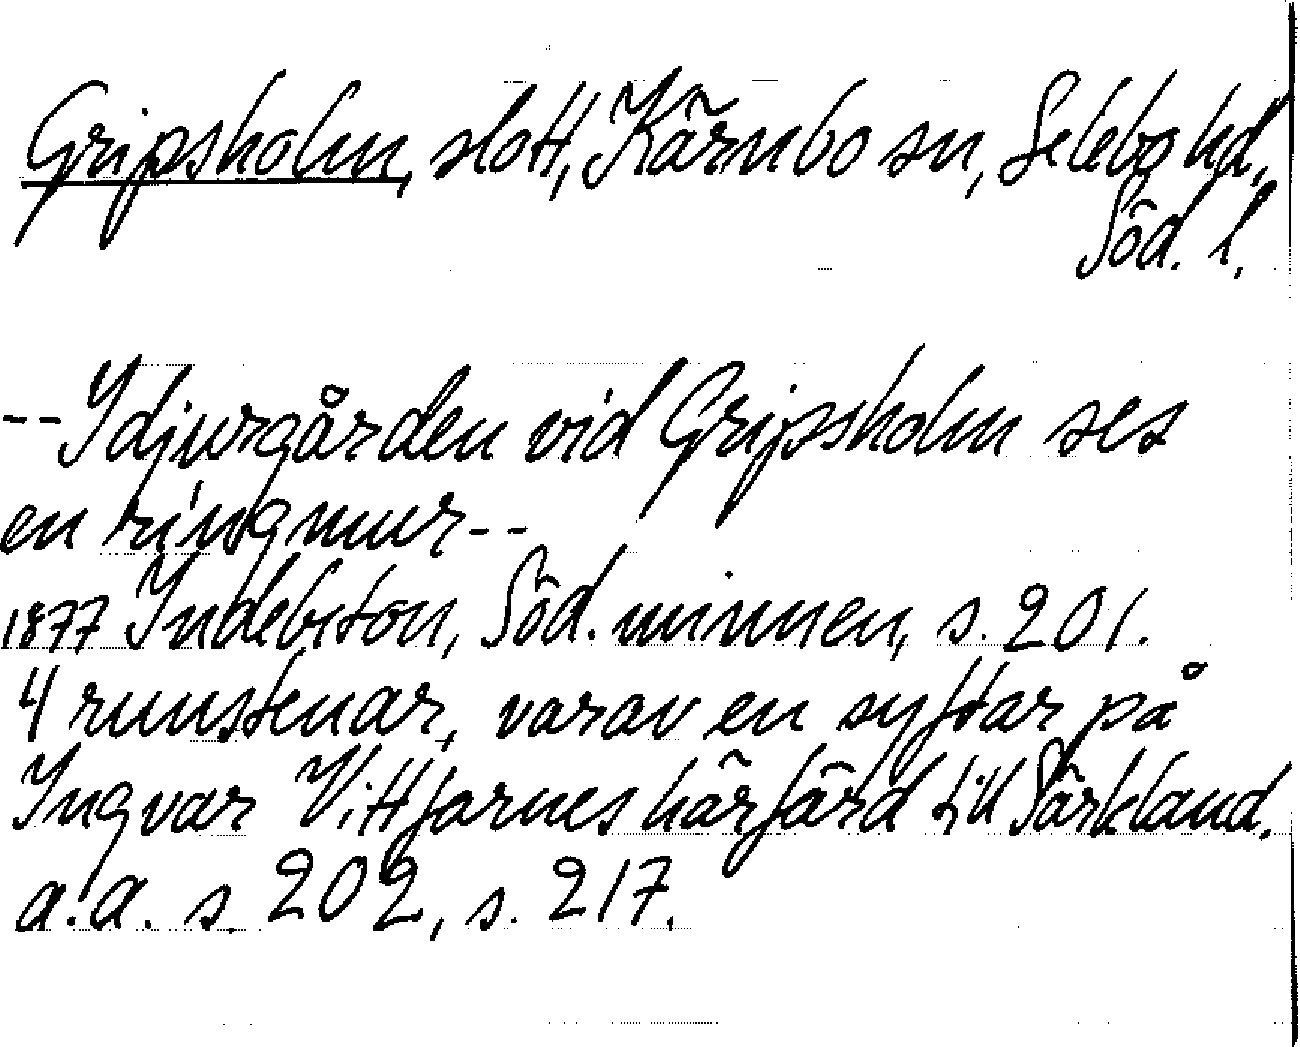 Gripsholm, slott, Kärnbo sn, Selebo hd,
Söd. l.
--I djurgården vid Gripsholm ses
en ringmur--
1877 Indebetou, Söd. minnen, s. 201.
4 runstenar, varav en syftar på
Ingvar Vittfarnes härfärd till Särkland.
a.a. s. 202, s. 217.